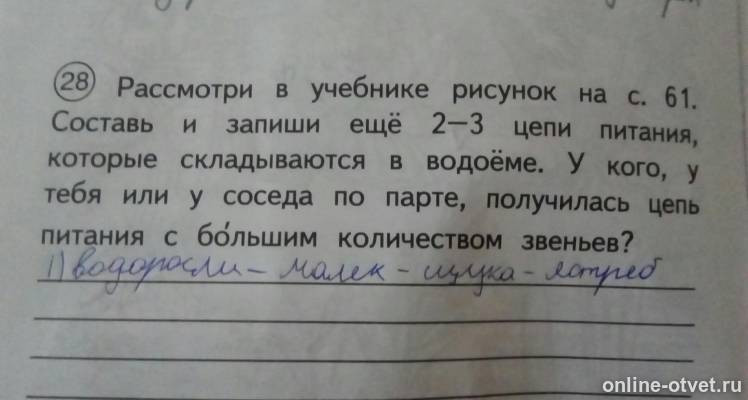 28 Рассмотри в учебнике рисунок на с. 61.
Составь и запиши ещё 2—3 цепи питания,
которые складываются в водоёме. У кого, у
тебя или у соседа по парте, получилась цепь
питания с бо́льшим количеством звеньев?
1) водоросли - малек - щука - ястреб
online-otvet.ru